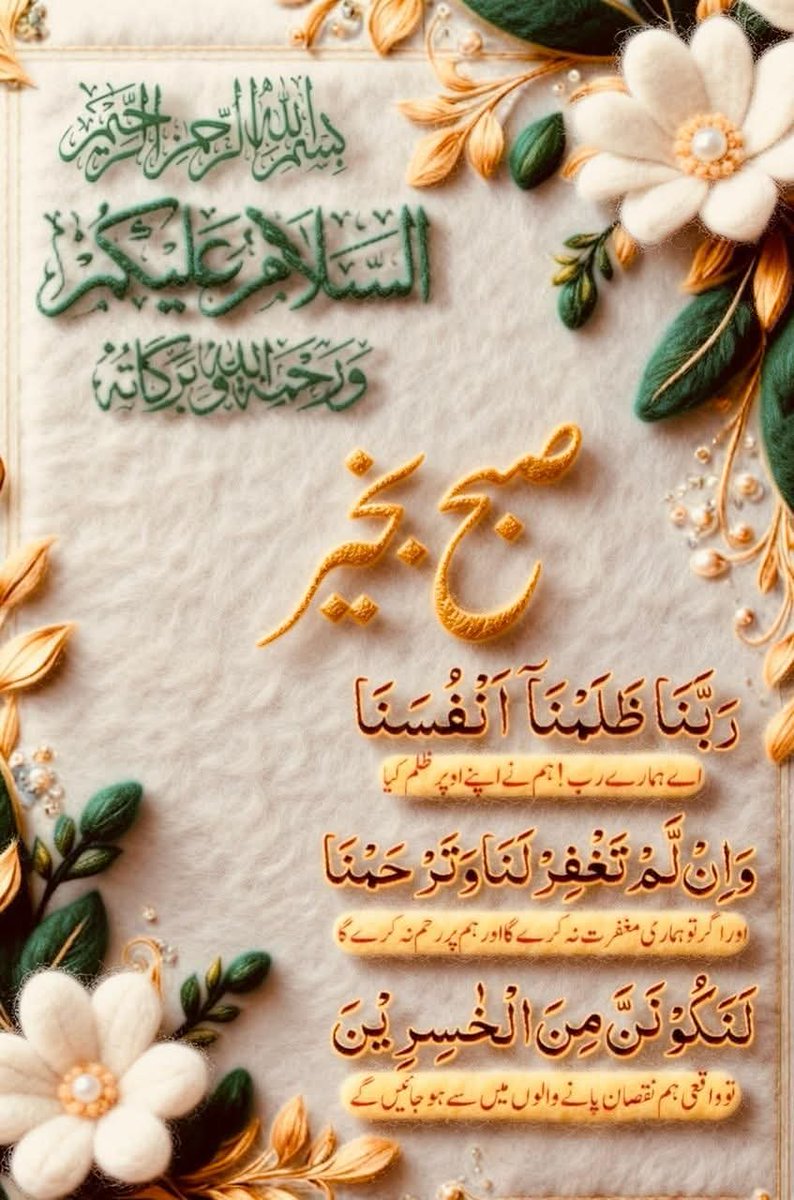 بسم الله الرحمن الرحيم
السَّلَامُ عَلَيْكُمْ
وَرَحْمَةُ اللهِ وَبَرَكَاتُهُ
صبح بخیر
رَبَّنَا ظَلَمْنَآ اَنْفُسَنَا
اے ہمارے رب! ہم نے اپنے اوپر ظلم کیا
وَاِنْ لَّمْ تَغْفِرْ لَنَا وَتَرْحَمْنَا
اور اگر تو ہماری مغفرت نہ کرے گا اور ہم پر رحم نہ کرے گا
لَنَكُوْنَنَّ مِنَ الْخٰسِرِيْنَ
تو واقعی ہم نقصان پانے والوں میں سے ہو جائیں گے